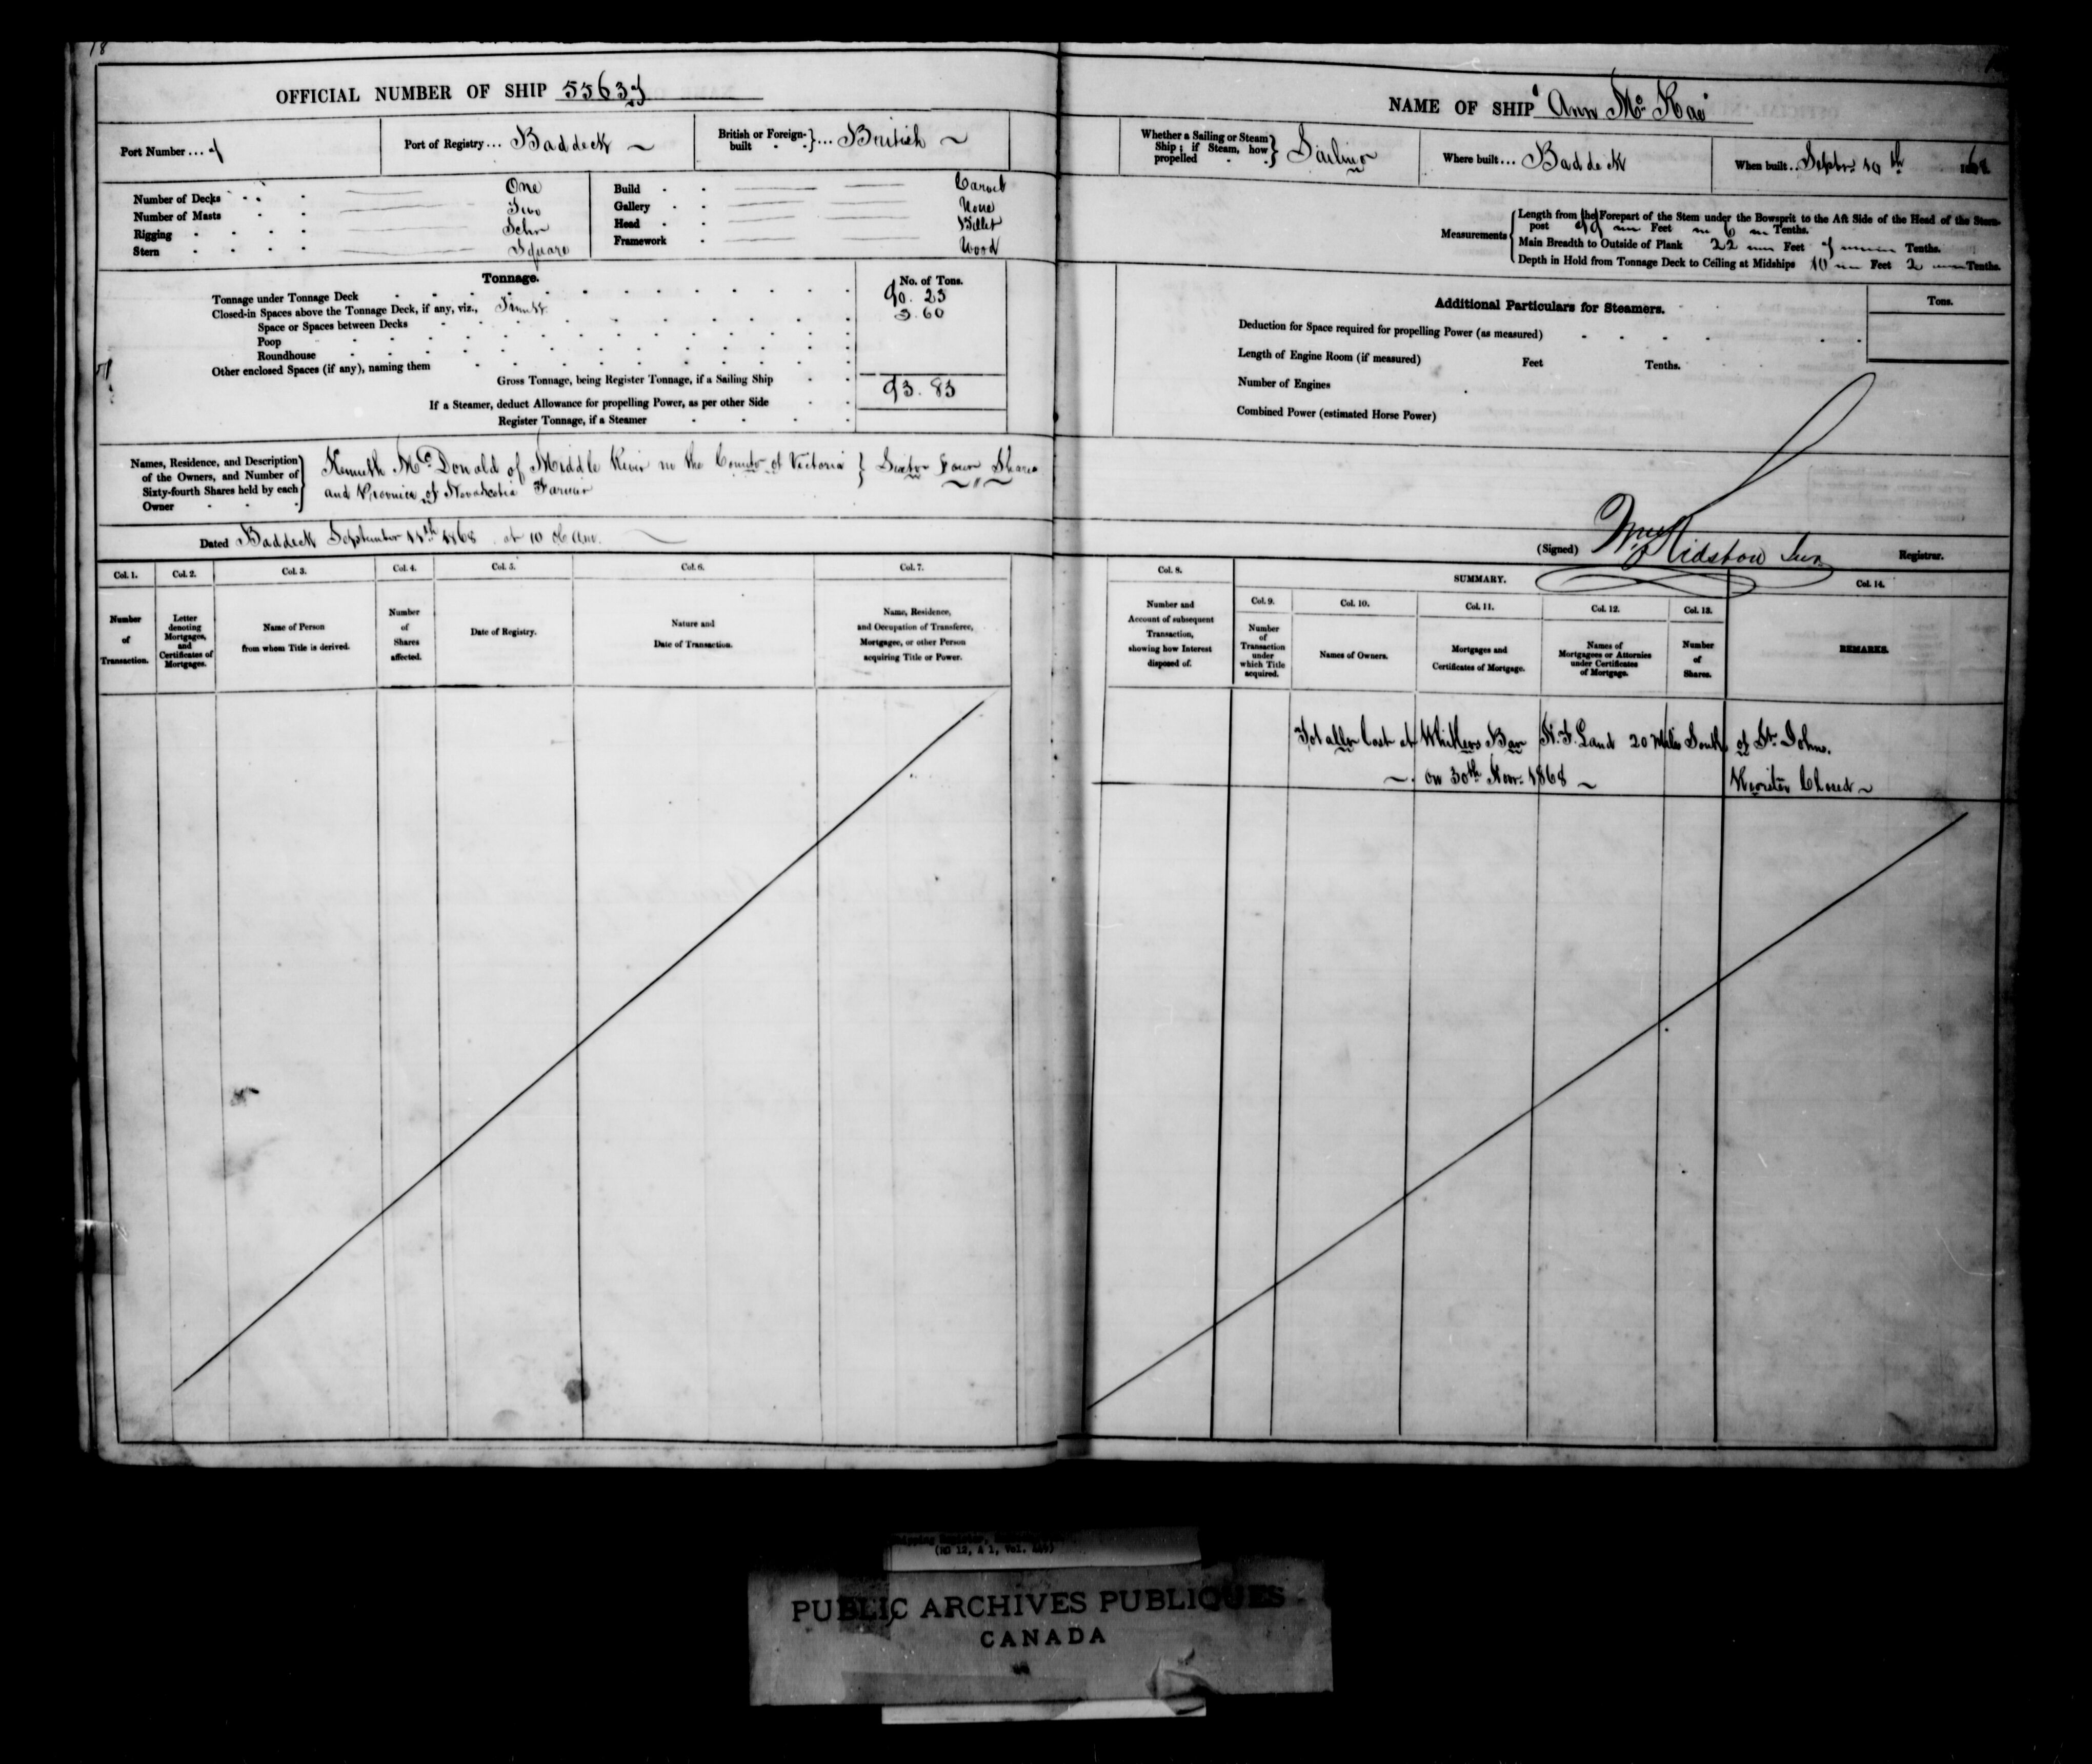 18
OFFICIAL NUMBER OF SHIP
NAME OF SHIP Ann Mc Kae
Port Number ...
Port of Registry ... Baddeck
British or Foreign-built } ... British
Whether a Sailing or Steam Ship; if Steam, how propelled } Sailing
Where built ... Baddeck
When built .. Septbr. 10th 1868
Number of Decks One
Number of Masts Two
Rigging Schr
Stern Square
Build Carvel
Gallery None
Head Billet
Framework Wood
Measurements
Length from the Forepart of the Stem under the Bowsprit to the Aft Side of the Head of the Stern-
post Feet 6 Tenths.
Main Breadth to Outside of Plank 22 Feet Tenths.
Depth in Hold from Tonnage Deck to Ceiling at Midships 10 Feet 2 Tenths.
Tonnage.
No. of Tons.
Tonnage under Tonnage Deck 90.23
Closed-in Spaces above the Tonnage Deck, if any, viz., Trunk 3.60
Space or Spaces between Decks
Poop
Roundhouse
Other enclosed Spaces (if any), naming them
Gross Tonnage, being Register Tonnage, if a Sailing Ship 93.83
If a Steamer, deduct Allowance for propelling Power, as per other Side
Register Tonnage, if a Steamer
Additional Particulars for Steamers.
Tons.
Deduction for Space required for propelling Power (as measured)
Length of Engine Room (if measured) Feet Tenths.
Number of Engines
Combined Power (estimated Horse Power)
Names, Residence, and Description of the Owners, and Number of Sixty-fourth Shares held by each Owner
Kenneth McDonald of Middle River in the County of Victoria } Sixty Four Shares
and Province of Novascotia Farmer
Dated Baddeck September 11th 1868 at 10 O C am.
(Signed) Wm Kidston Jun. Registrar.
Col. 1. Col. 2. Col. 3. Col. 4. Col. 5. Col. 6. Col. 7.
Number of Transaction.
Letter denoting Mortgages, and Certificates of Mortgages.
Name of Person from whom Title is derived.
Number of Shares affected.
Date of Registry.
Nature and Date of Transaction.
Name, Residence, and Occupation of Transferee, Mortgagee, or other Person acquiring Title or Power.
Col. 8.
Number and Account of subsequent Transaction, showing how Interest disposed of.
SUMMARY.
Col. 9. Col. 10. Col. 11. Col. 12. Col. 13. Col. 14.
Number of Transaction under which Title acquired.
Names of Owners.
Mortgages and Certificates of Mortgage.
Names of Mortgagees or Attornies under Certificates of Mortgage.
Number of Shares.
REMARKS.
Totally lost at Whittlers Bay N. F. Land 20 Miles South of St. Johns.
on 30th Nov. 1868 Register Closed
(RG 12, A 1, Vol.
PUBLIC ARCHIVES PUBLIQUES
CANADA